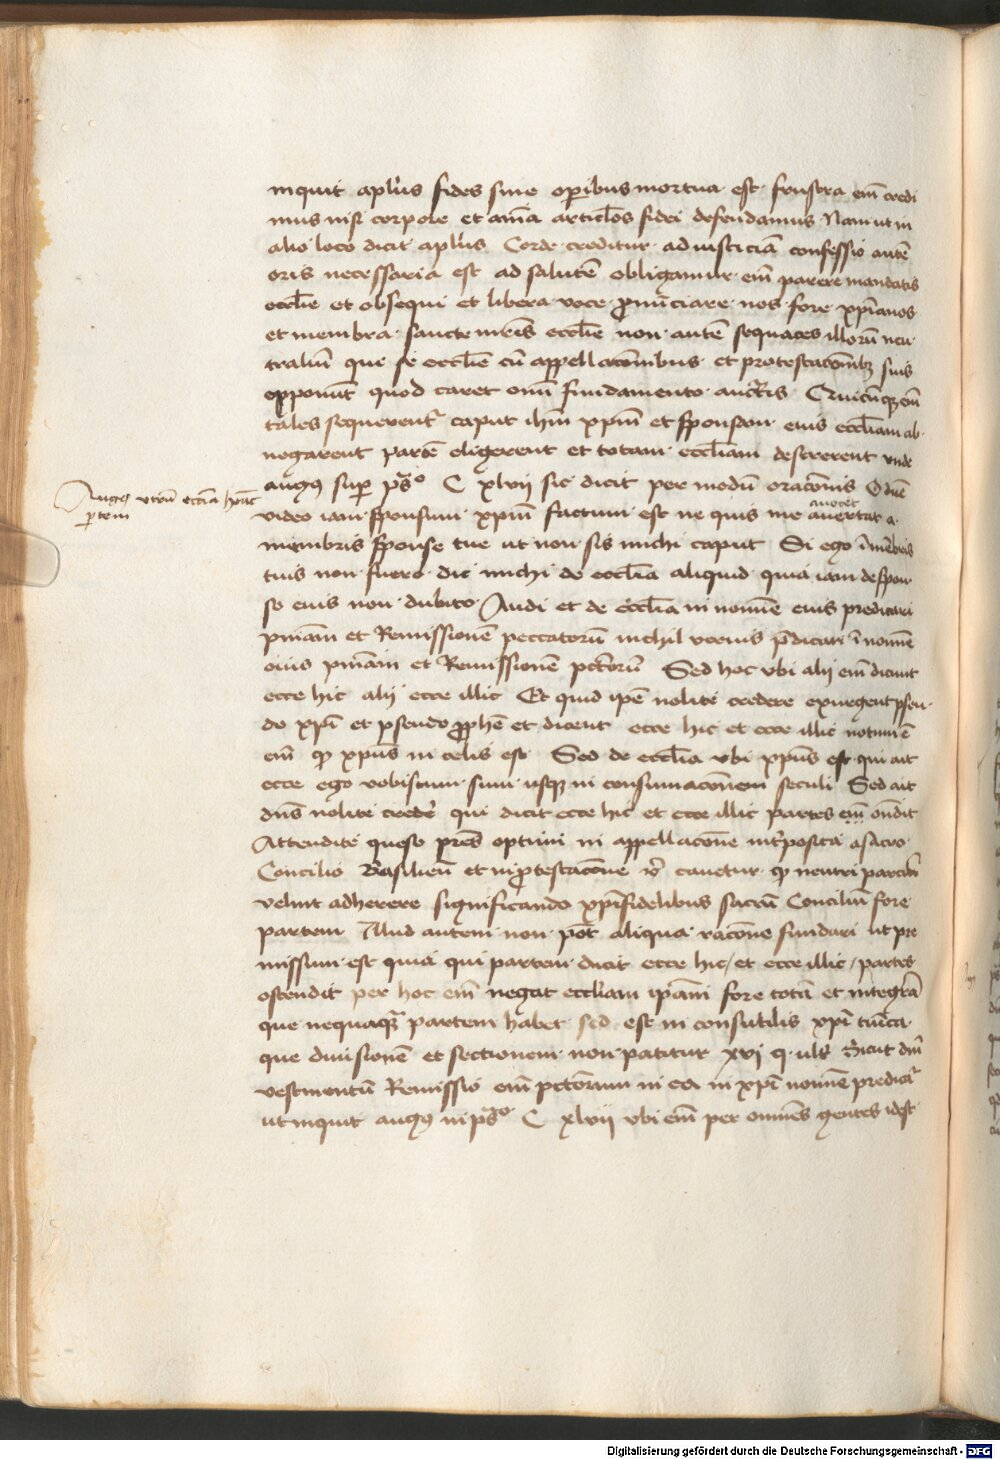 inquit apl'us fides sine operibus mortua est frustra em̄ credi
mus nisi corpore et aīa artic̄los fidei defendamus Nam ut in
alio loco dicit apl'us Corde creditur ad iusticiā confessio autē
oris necessaria est ad salutē obligamur em̄ parere mandatis
eccl̄ie et obsequi et libera voce pronūciare nos fore xp̄ianos
et membra sancte mr̄is eccl̄ie non autē sequaces illorū neu
traliū qui se eccl̄ie cū appellacōnibus et protestacōnibꝫ suis
opponūt quod caret om̄i fundamento auctr̄is Quicūqꝫ em̄
tales sequerent᷑ caput ihm̄ xp̄m et sponsum eius eccl̄iam ab
negarent partē eligerent et totam eccl̄iam desererent unde
augꝰ sup ps̄o C xlvii sic dicit per modū orac̄onis O dn̄e
Augꝰ utrū eccīa hēat
partem
avocet
video iam sponsum xp̄m factum est ne quis me avertat a
membris sponse tue ut non sis michi caput Si ego ī mēbris
tuis non fuero dic michi de eccl̄ia aliquid quia iam de spon
so eius non dubito Audi et de eccl̄ia in nomīe eius predicari
pn̄iam et Remissionē peccatorū nichil verius p̄dicari ī nomīe
eius pn̄iam et Remissionē pctorū Sed hoc ubi alii em̄ dicunt
ecce hic alii ecce illic Et quid ip̄e nolite credere exurgent pseu
do xp̄i et pseudo pro̱phē et dicent ecce hic et ecce illic notum ē
em̄ qꝫ xp̄us in celis est Sed de eccl̄ia ubi xp̄us est qui ait
ecce ego vobiscum sum usqꝫ in consumac̄onem seculi Sed ait
dn̄s nolite creder̄ qui dicit ecce hic et ecce illic partes em̄ on̄dit
Attendite queso patres optimi in appellac̄one int̄posita a sacro
Concilio Basilien̄ et in protestac̄one etc̄ cavetur qꝫ neutri parciū
velint adherere significando xp̄ifidelibus sacrū Conciliū fore
partem Illud autem non pōt aliqua rac̄one fundari ut pre
missum est quia qui partem dicit ecce hic / et ecce illic / partes
ostendit per hoc em̄ negat eccl̄iam ip̄am fore totā et integrā
que nequaqꝫ partem habet sed est inconsutilis xp̄i tunica
que divisionē et sectionem non patitur xvi q ult Sicut dn̄i
vestimentū Remissio em̄ pctorum in ea in xp̄i nomīe predicat᷑
ut inquit augꝰ in ps̄o C xlvii ubi em̄ per omnes gentes idest
Digitalisierung gefördert durch die Deutsche Forschungsgemeinschaft - DFG